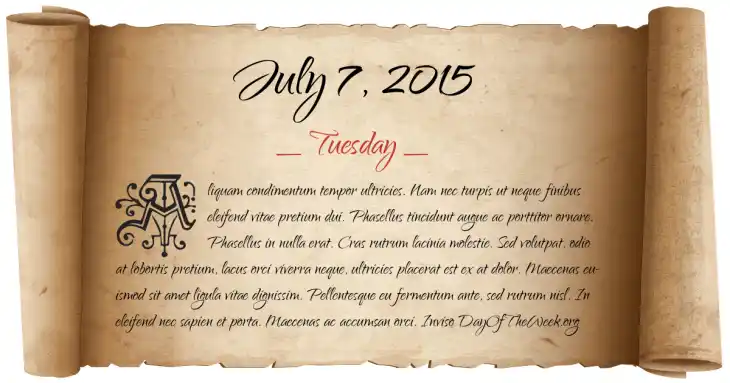 July 7, 2015
_ Tuesday _
Aliquam condimentum tempor ultricies. Nam nec turpis ut neque finibus
eleifend vitae pretium dui. Phasellus tincidunt augue ac porttitor ornare.
Phasellus in nulla erat. Cras rutrum lacinia molestie. Sed volutpat, odio
at lobortis pretium, lacus orci viverra neque, ultricies placerat est ex at dolor. Maecenas eu-
ismod sit amet ligula vitae dignissim. Pellentesque eu fermentum ante, sed rutrum nisl. In
eleifend nec sapien et porta. Maecenas ac accumsan orci. Inviso DayOfTheWeek.org